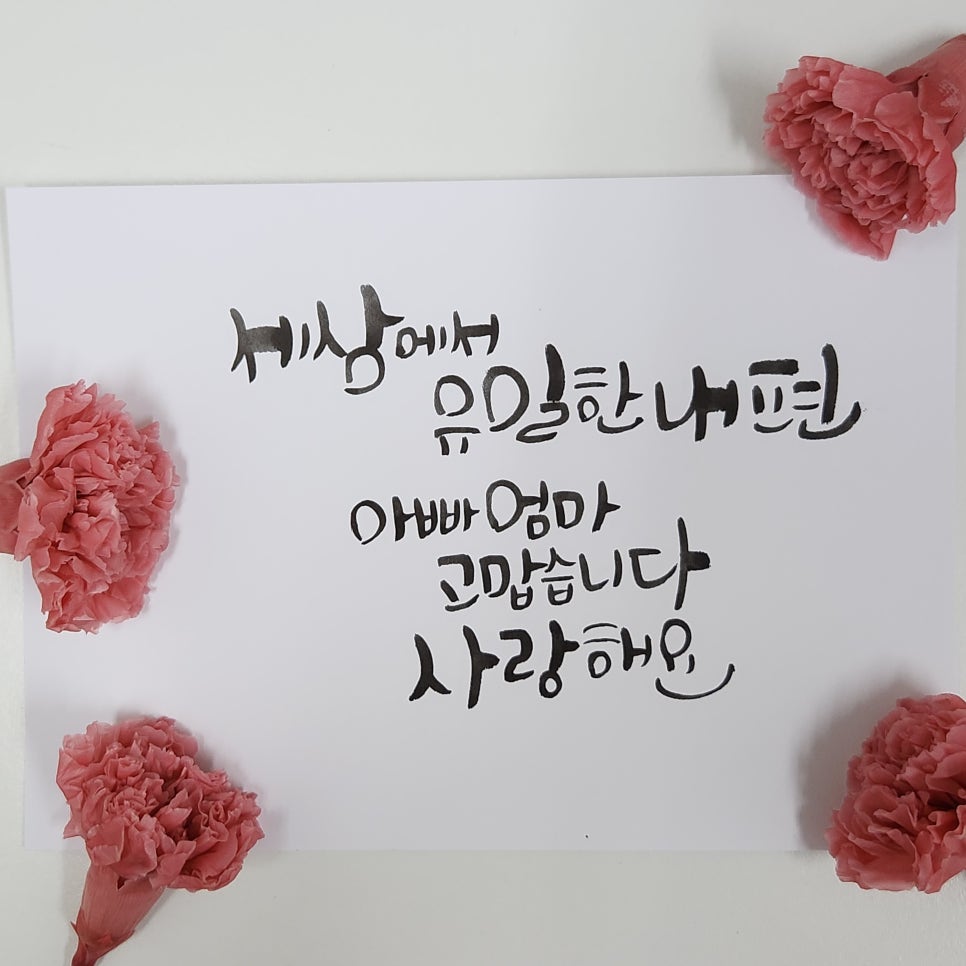 세상에서
유일한 내편
아빠 엄마
고맙습니다
사랑해요